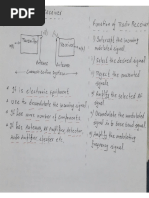 Receiver
Function of Radio Receiver
Transmitter
Receiver
Antenna
Antenna
Communication System
1) Intercept the incoming modulated signal
2) Select the desired signal
3) Reject the unwanted signals
4) Amplify the selected RF signal
5) Demodulated the modulated signal to get back original signal
6) Amplify the modulating frequency signal
• It is electronic equipment.
• Use to demodulate the incoming signal
• It has more numbers of components
• It has Antenna, RF Amplifier, detector, audio Amplifier, speaker etc.